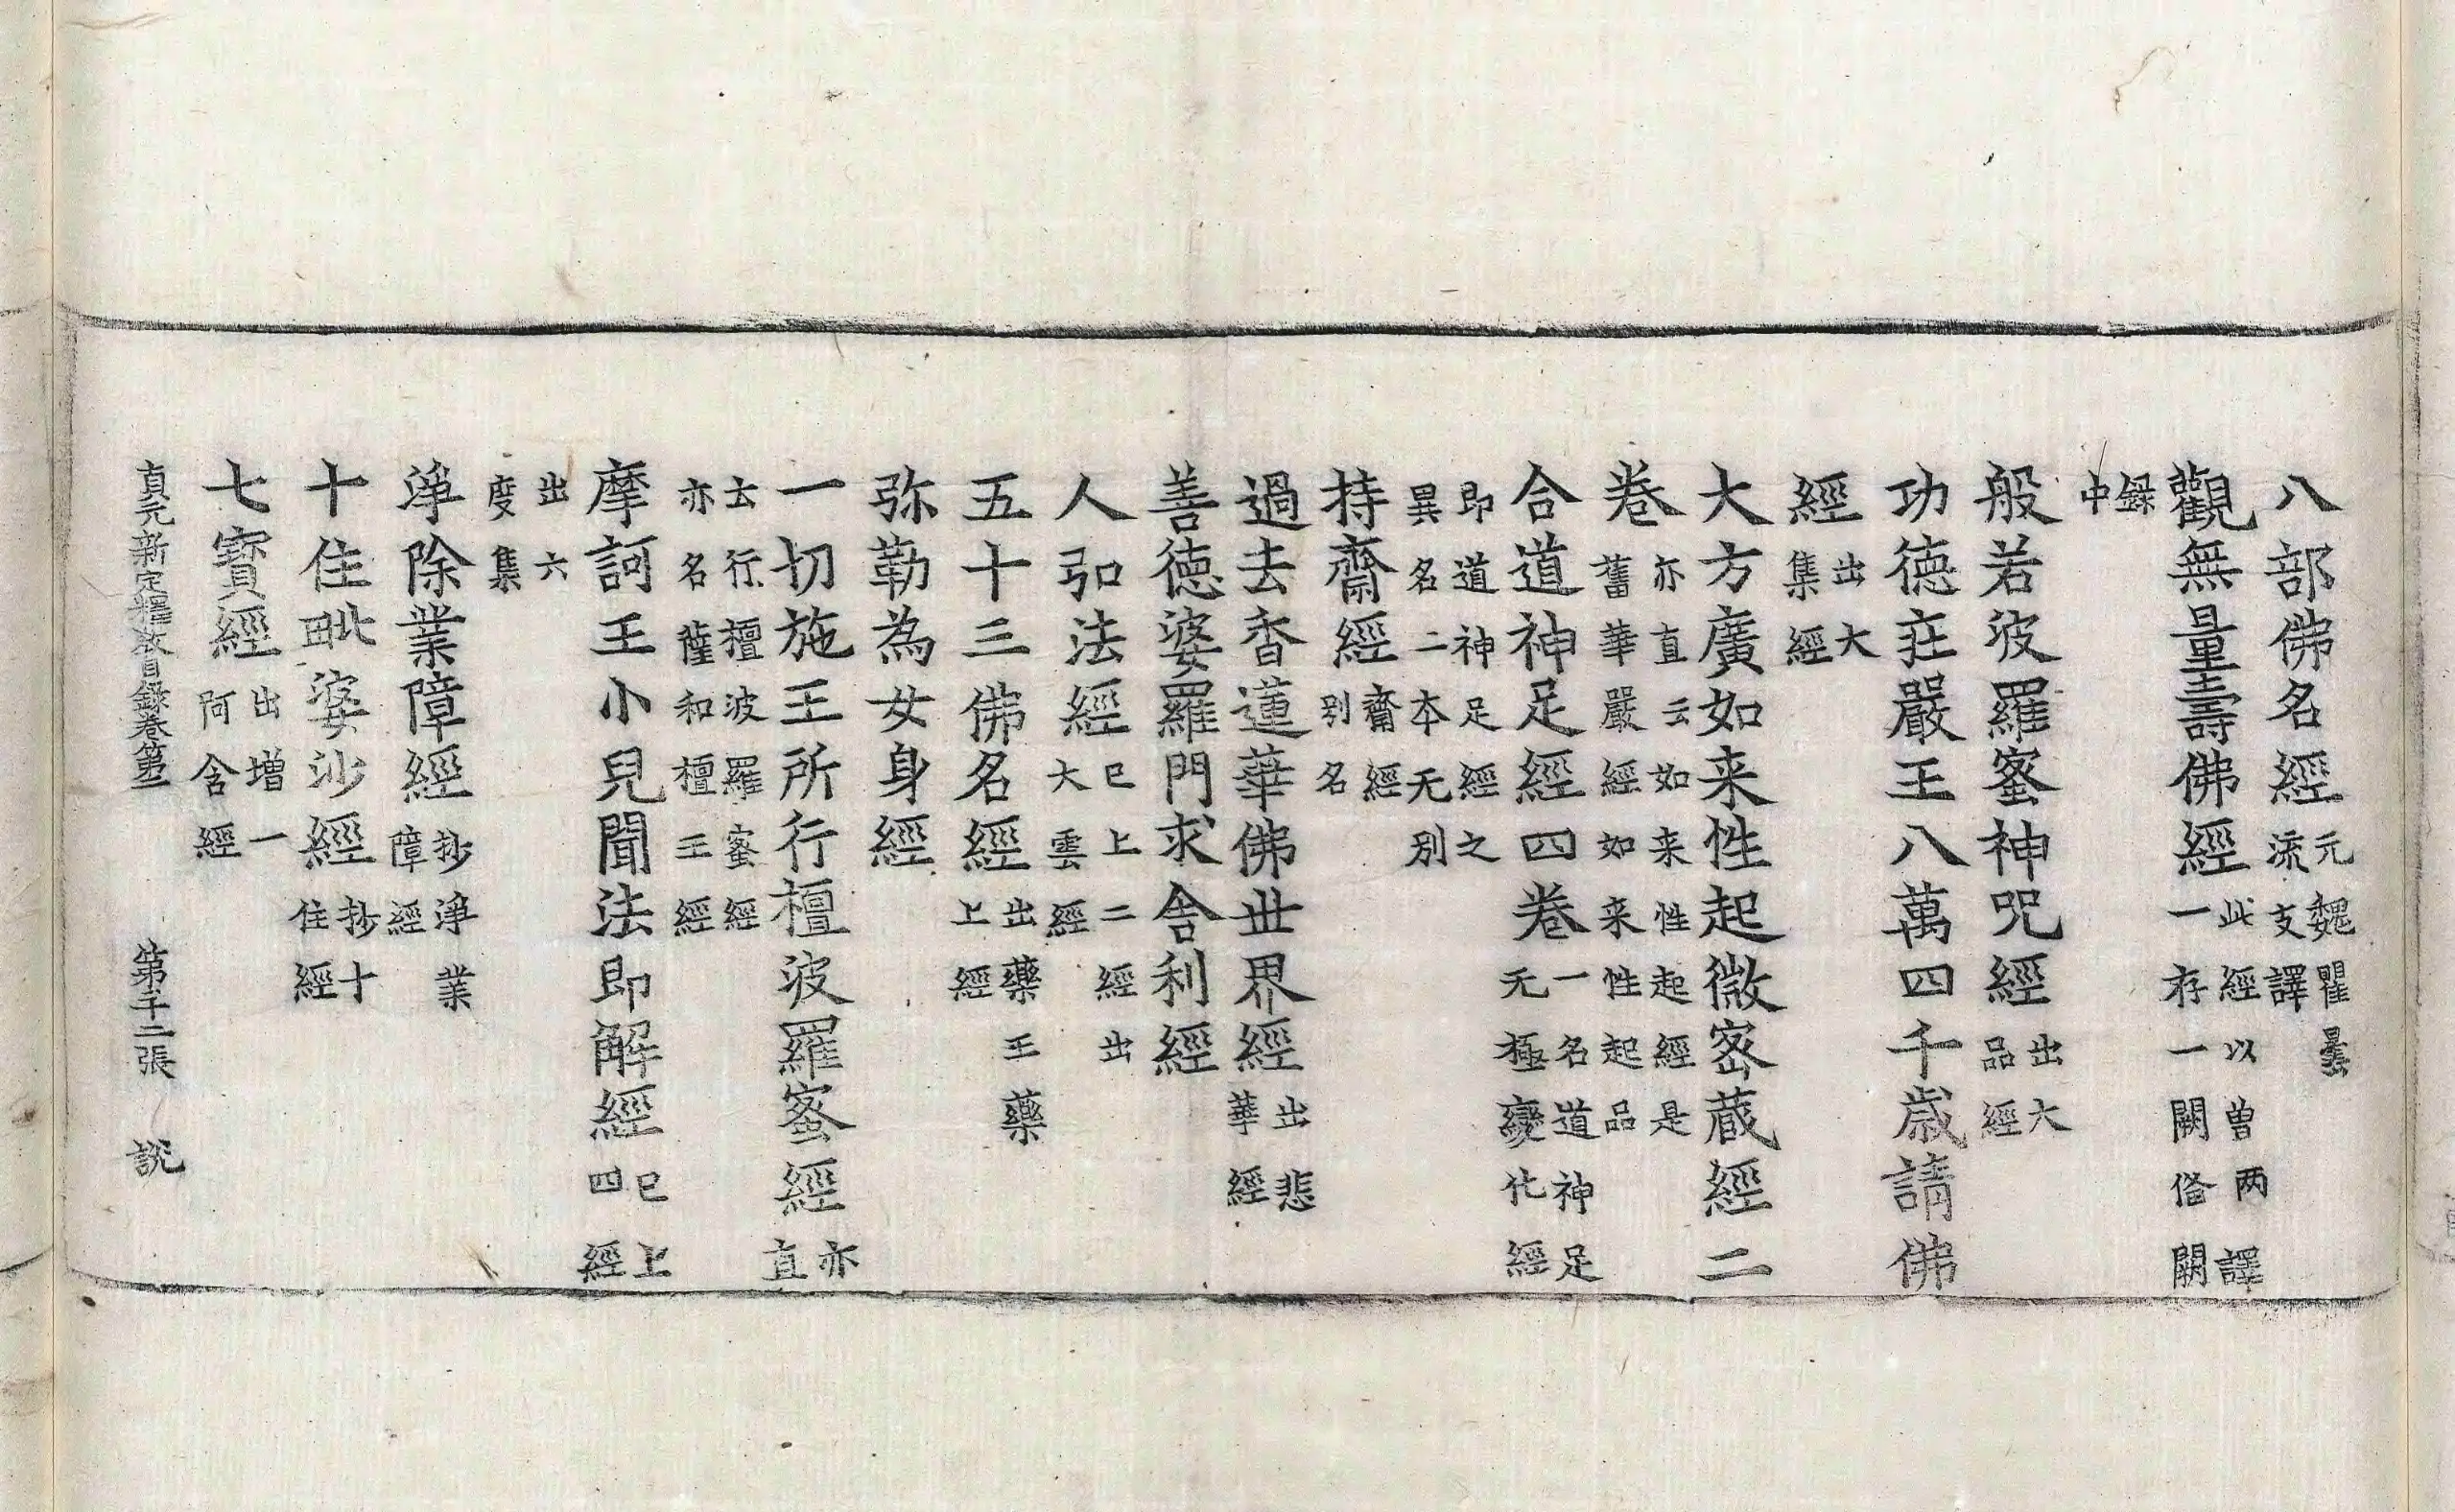 八部佛名經元魏瞿曇流支譯
觀無量壽佛經此經以曽两譯一存一闕俻闕
録中
般若波羅蜜神咒經出大品經
功德莊嚴王八萬四千歳請佛
經出大集經
大方廣如来性起微宻蔵經二
卷亦直云如来性起經是舊華嚴經如来性起品
合道神足經四卷一名道神足无極變化經
即道神足經之異名二本无别
持齋經齋經别名
過去香蓮華佛丗界經出悲華經
善德婆羅門求舍利經
人弘法經已上二經出大雲經
五十三佛名經出藥王藥上經
弥勒為女身經
一切施王所行檀波羅蜜經亦直
云行檀波羅蜜經亦名薩和檀王經
摩訶王小兒聞法即解經已上四經
出六度集
淨除業障經抄淨業障經
十住毗婆沙經抄十住經
七寶經出增一阿含經
貞元新定釋教目録卷第 第二張